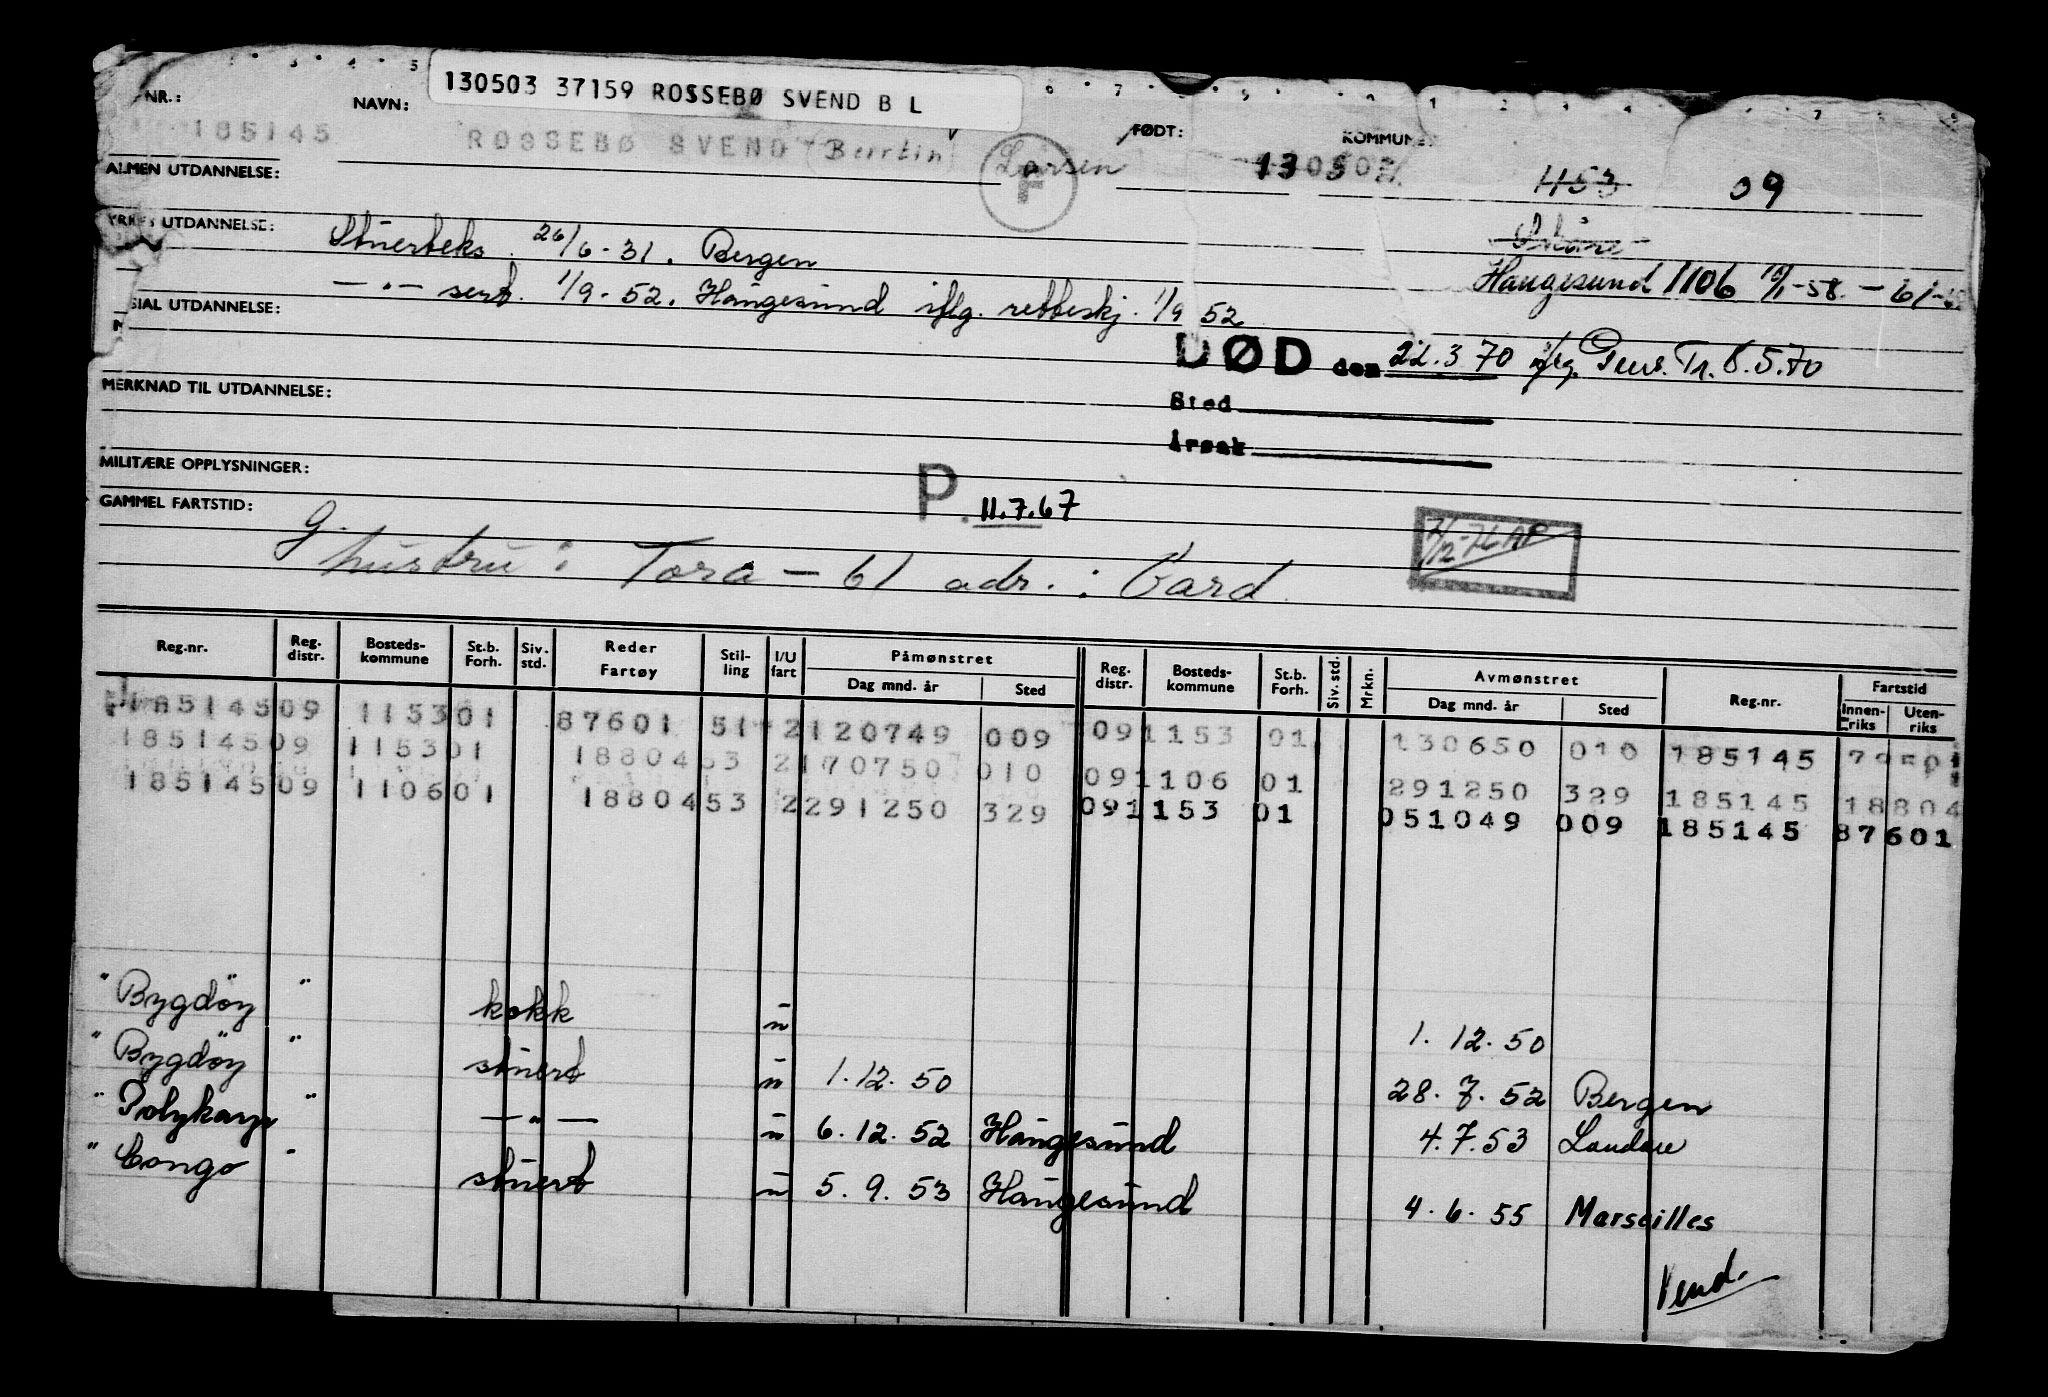 130503 37159 ROSSEBØ SVEND B L
NR.: NAVN: FØDT: KOMMUNE
185145 ROSSEBØ SVEND (Berrtin) Larsen F 130503 1153 09
ALMEN UTDANNELSE:
YRKES UTDANNELSE: Stuerteks. 26/6-31. Bergen Skåre
—"— sert. 1/9-52. Haugesund iflg. retteskj. 1/9 52 Haugesund 1106 -58. -61-
SIAL UTDANNELSE:
DØD den 22.3 70 iflg. Pens. Tr. 8.5.70
MERKNAD TIL UTDANNELSE:
Sted
Årsak
MILITÆRE OPPLYSNINGER:
P. 11.7.67
GAMMEL FARTSTID: G
hustru: Tora - 61 adr.: Vard
7/12-76 AP
Reg.nr. Reg. distr. Bosteds-kommune St.b. Forh. Siv. std. Reder Fartøy Stil-ling I/U fart Påmønstret Dag mnd. år Sted Reg. distr. Bosteds-kommune St.b. Forh. Siv. std. Mrkn. Avmønstret Dag mnd. år Sted Reg.nr. Fartstid Innen-riks Uten-riks
185145 09 1153 01 87601 51 2 120749 009 09 1153 01 130650 010 185145
185145 09 1153 01 18804 53 2 170750 010 09 1106 01 291250 329 185145 18804
185145 09 1106 01 18804 53 2 291250 329 09 1153 01 051049 009 185145 87601
"Bygdöy" kokk u 1.12.50
"Bygdöy" stuert u 1.12.50 28.7.52 Bergen
"Polykarp" —"— u 6.12.52 Haugesund 4.7.53 Landøre
"Congo" stuert u 5.9.53 Haugesund 4.6.55 Marseilles
Vend.